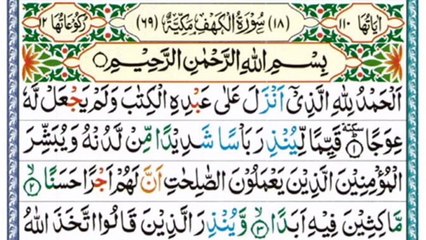 اٰیَاتُهَا ١١٠ (١٨) سُوْرَةُ الْكَهْفِ مَكِّیَّةٌ (٦٩) رُكُوْعَاتُهَا ١٢
بِسْمِ اللّٰهِ الرَّحْمٰنِ الرَّحِیْمِ
اَلْحَمْدُ لِلّٰهِ الَّذِیْۤ اَنْزَلَ عَلٰى عَبْدِهِ الْكِتٰبَ وَلَمْ یَجْعَلْ لَّهٗ
عِوَجًا ١ سكتة قَیِّمًا لِّیُنْذِرَ بَاْسًا شَدِیْدًا مِّنْ لَّدُنْهُ وَیُبَشِّرَ
الْمُؤْمِنِیْنَ الَّذِیْنَ یَعْمَلُوْنَ الصّٰلِحٰتِ اَنَّ لَهُمْ اَجْرًا حَسَنًا ٢ لا
مَّاكِثِیْنَ فِیْهِ اَبَدًا ٣ لا وَّیُنْذِرَ الَّذِیْنَ قَالُوا اتَّخَذَ اللّٰهُ